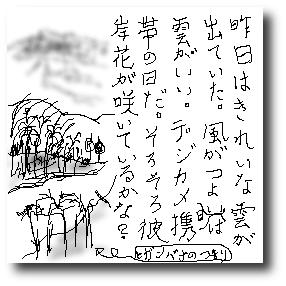 昨日はきれいな雲が
出ていた。風がつよ
雲がいい。デジカメ携
帯の日だ。そろそろ彼
岸花が咲いているかな？
ヒガンバナのつもり